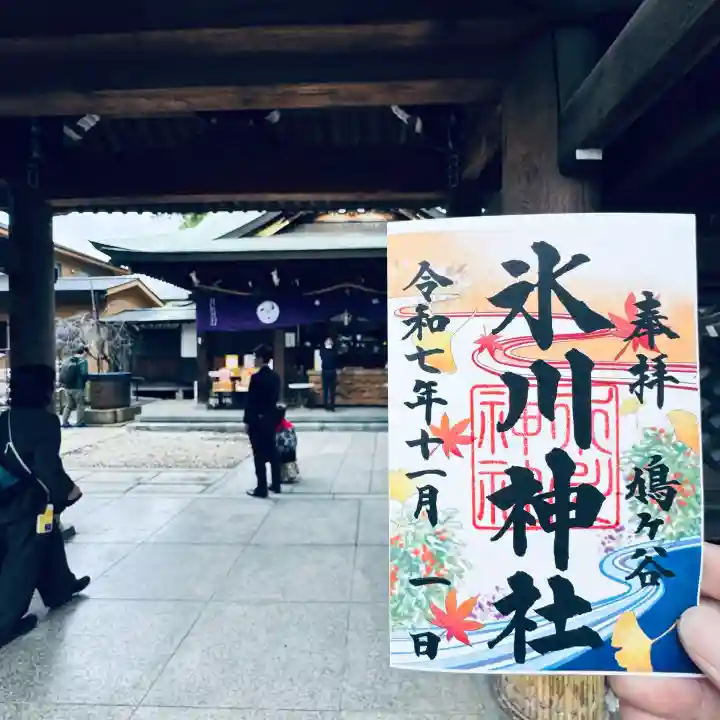 奉拝
鳩ヶ谷
氷川神社
氷川神社
令和七年十一月一日